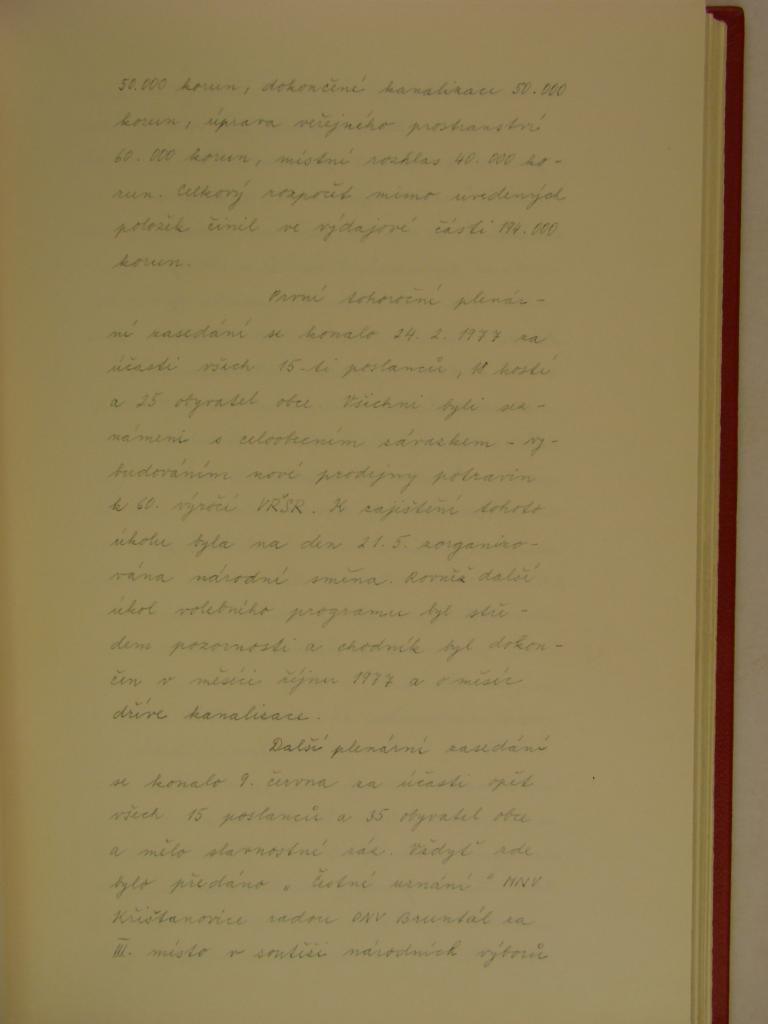 50.000 korun, dokončení kanalizace 50.000
korun, úprava veřejného prostranství
60.000 korun, místní rozhlas 40.000 ko-
run. Celkový rozpočet mimo uvedených
položek činil ve výdajové části 194.000
korun.
První tohoroční plenár-
ní zasedání se konalo 24. 2. 1977 za
účasti všech 15-ti poslanců, 18 hostí
a 25 obyvatel obce. Všichni byli sez-
námeni s celoobecním závazkem - vy-
budováním nové prodejny potravin
k 60. výročí VŘSR. K zajištění tohoto
úkolu byla na den 21.5. zorganizo-
vána národní směna. Rovněž další
úkol volebního programu byl stře-
dem pozornosti a chodník byl dokon-
čen v měsíci říjnu 1977 a o měsíc
dříve kanalisace.
Další plenární zasedání
se konalo 9. června za účasti opět
všech 15 poslanců a 35 obyvatel obce
a mělo slavnostní ráz. Vždyť zde
bylo předáno „Čestné uznání" MNV
Křišťanovice radou ONV Bruntál za
III. místo v soutěži národních výborů